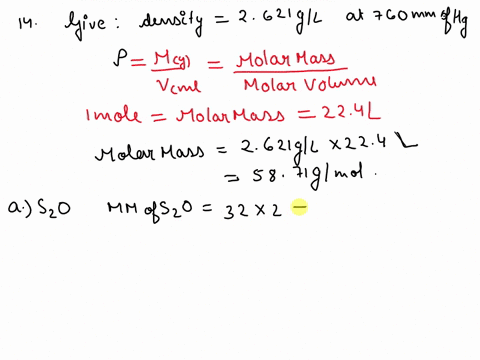 14. Give : density = 2.621 g/L at 760 mm of Hg
ρ = M(g) / Vcml = Molar Mass / Molar Volume
1 mole = Molar Mass = 22.4 L
Molar Mass = 2.621 g/L × 22.4 L
= 58.71 g/mol.
a.) S₂O MM of S₂O = 32 × 2 -